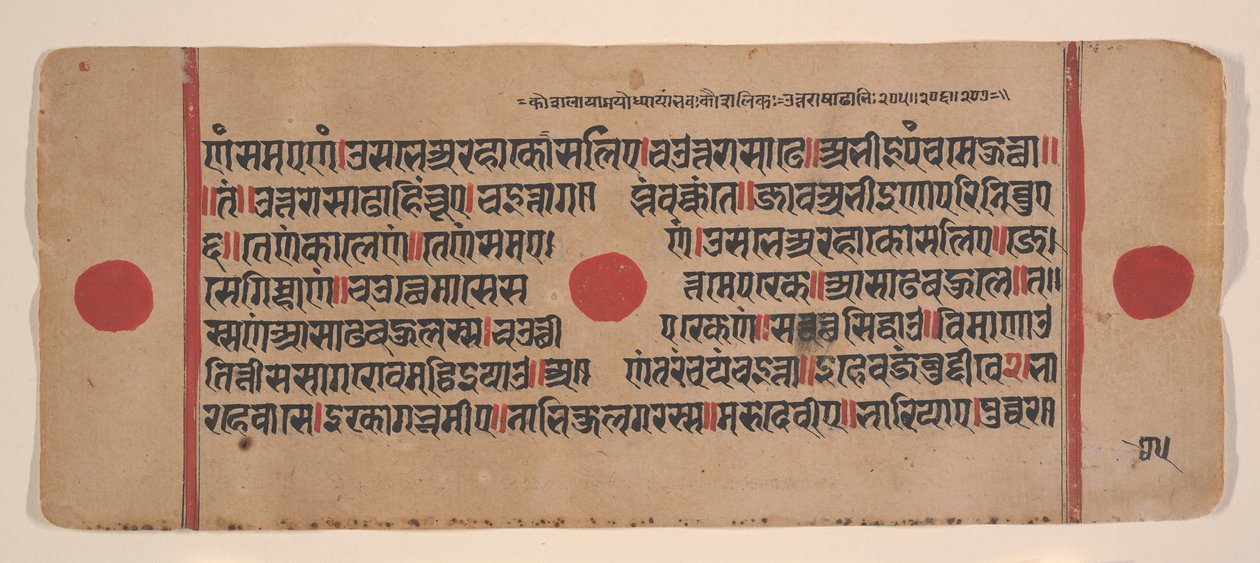 =कोशलायामयोध्यायां भवः कौशलिकः=उत्तराषाढाभिः २०५॥२०६॥२०७=॥
णं समएणं।उसभेअरहाकोसलिए।चउउत्तरासाढे॥अभीइपंचमेहुत्था॥
॥तं॥उत्तरासाढाहिंचूए।चइत्तागप्भंवक्कंते॥जावअभीइणापरिनिव्वुए
६॥तेणंकालेणं॥तेणंसमएणं।उसभेअरहाकोसलिए॥जे।
सेगिम्हाणं॥चउत्थेमासेसत्तमेपरके॥आसाढबहुले॥त॥
स्सणंआसाढबहुलस्स।चउत्थीपरकेणं॥सव्वट्ठसिद्धाउ॥विमाणाउ
तित्तीससागरोवमट्ठिइयाउ॥अणंतरंचयंचइत्ता॥इहेवजंबुद्दीवे२भा
रहेवासे।इरकागभूमीए॥नाभिकुलगरस्स॥मरुदेवीए॥भारियाए।पुव्वरत्ता